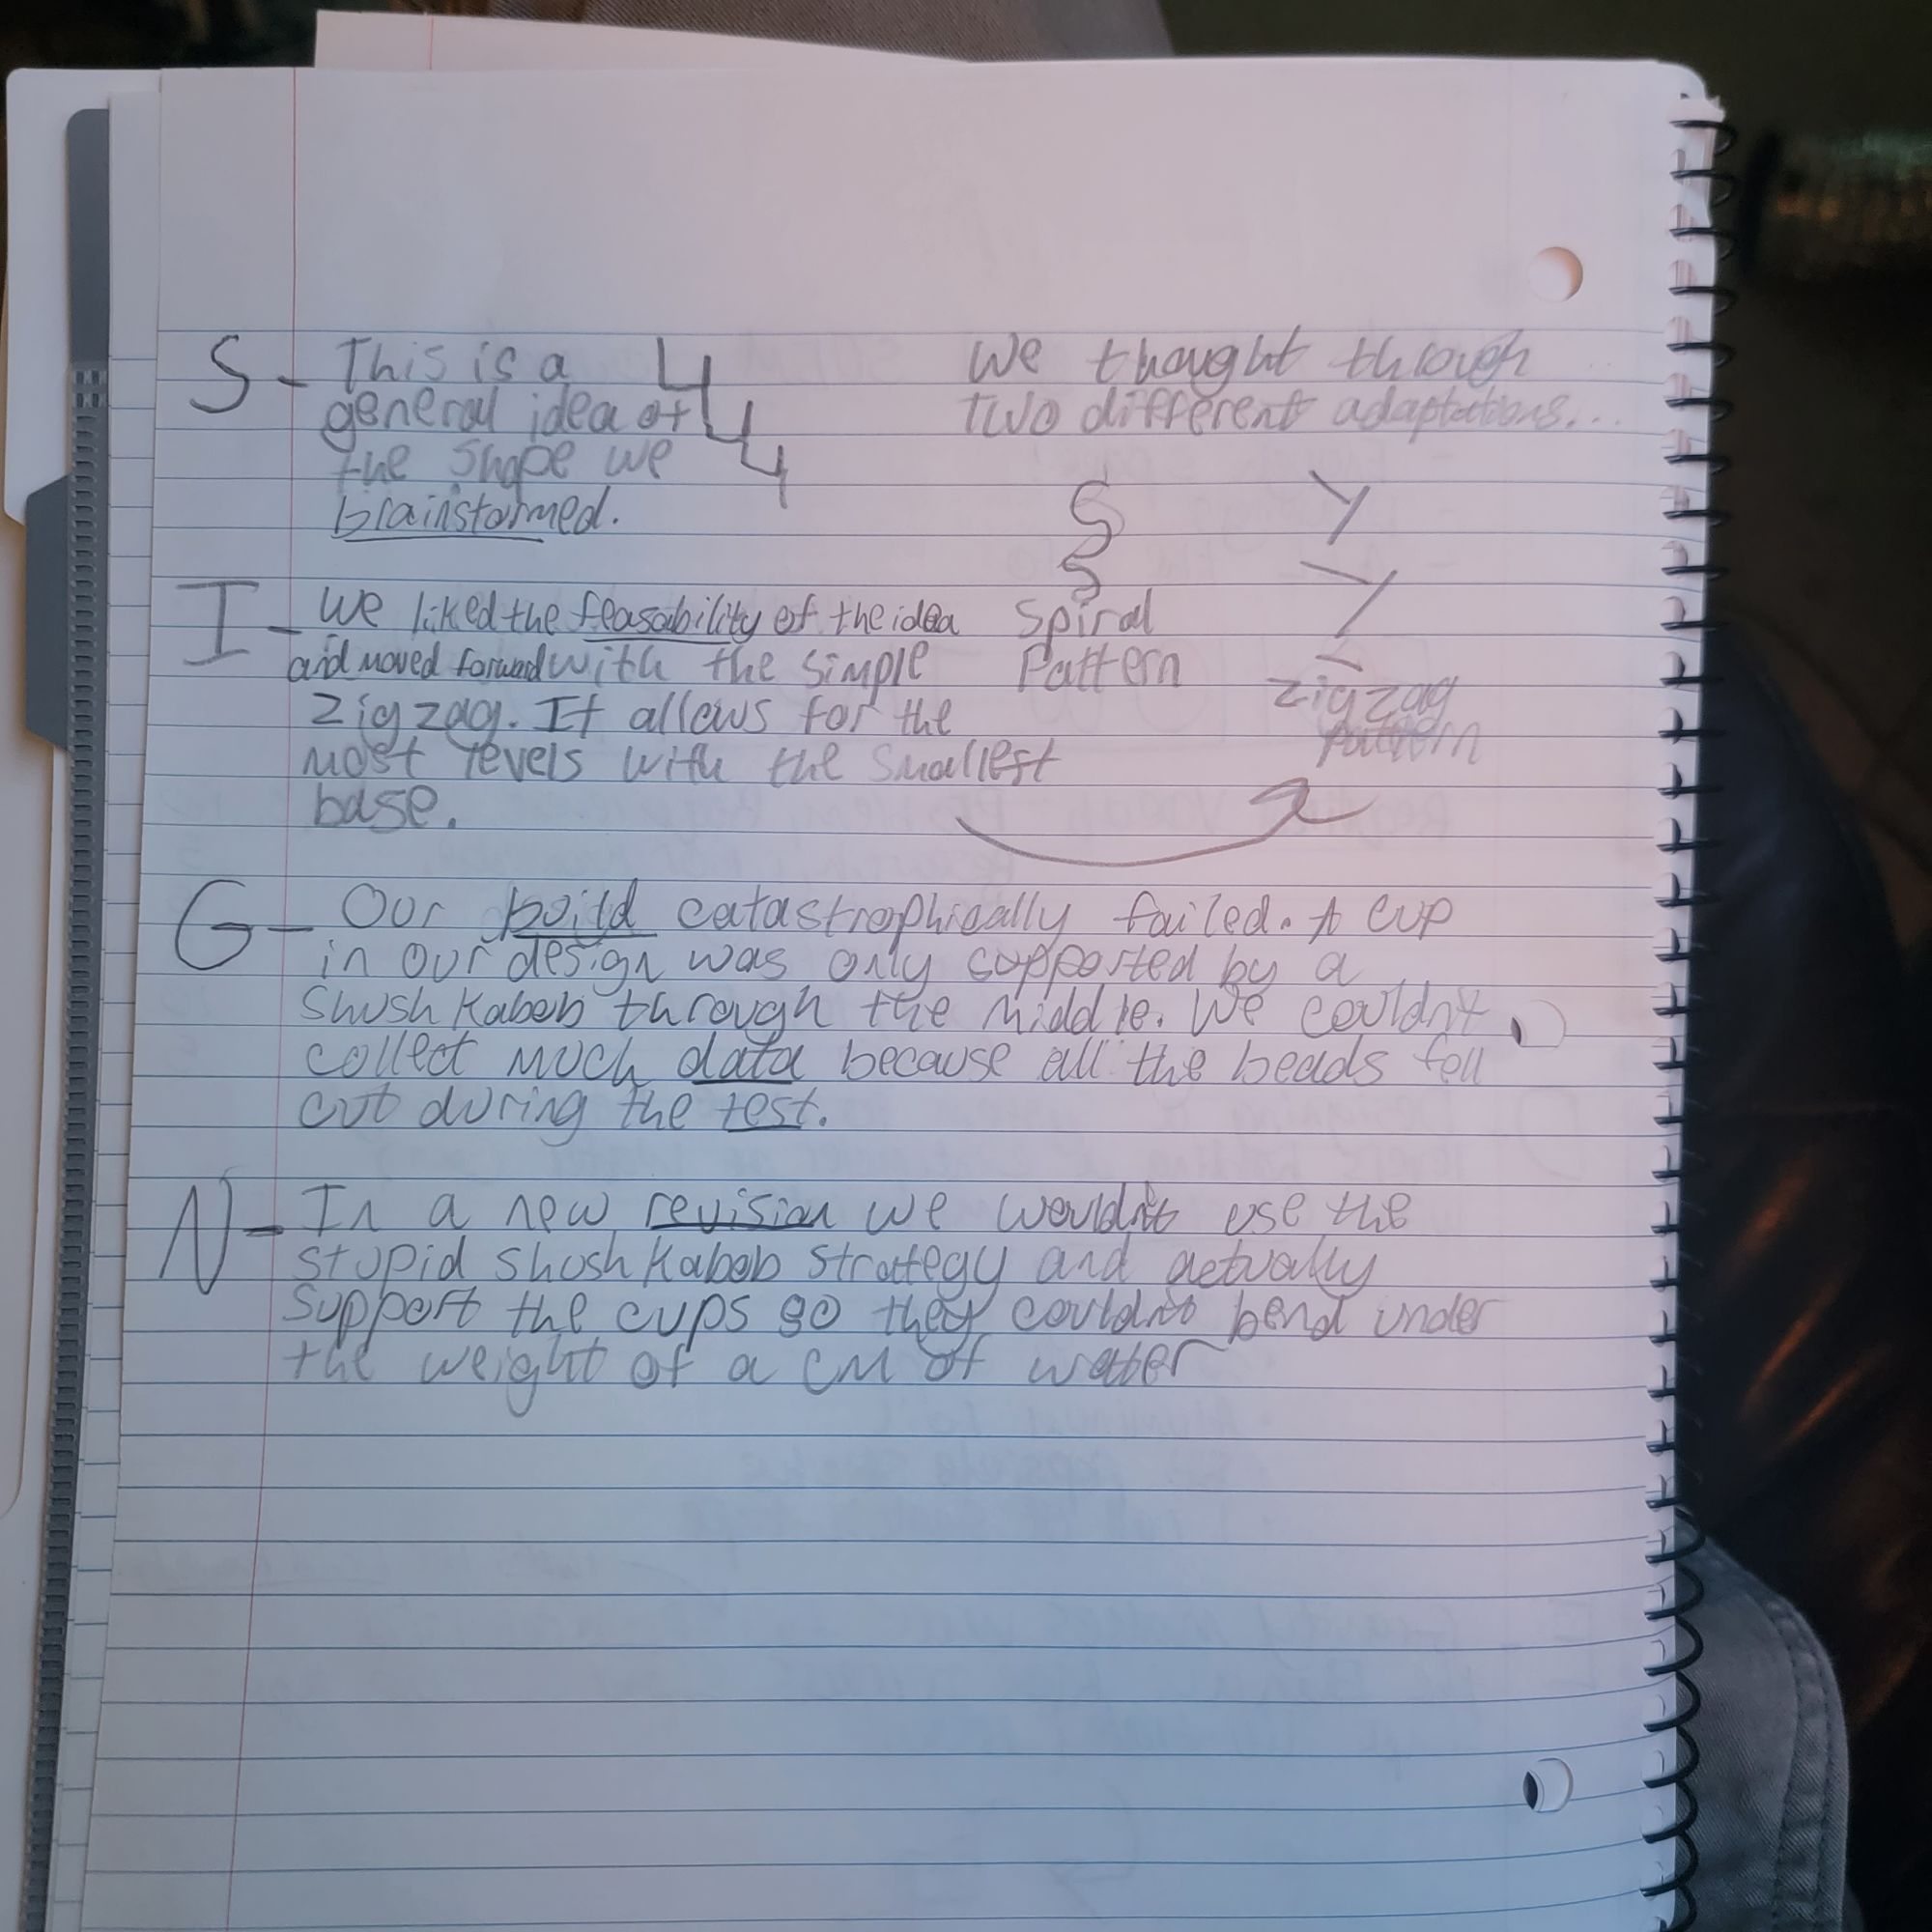 S - This is a
general idea of
the shape we
brainstormed.
We thought through
two different adaptations...
Spiral
Pattern
Zigzag
pattern
I - We liked the feasability of the idea
and moved forward with the simple
Zigzag. It allows for the
most levels with the smallest
base.
G - Our build catastrophically failed. A cup
in our design was only supported by a
Shush Kabob through the middle. We couldn't
collect much data because all the beads fell
out during the test.
N - In a new revision we wouldn't use the
stupid shush Kabob strategy and actually
support the cups so they couldn't bend under
the weight of a cm of water